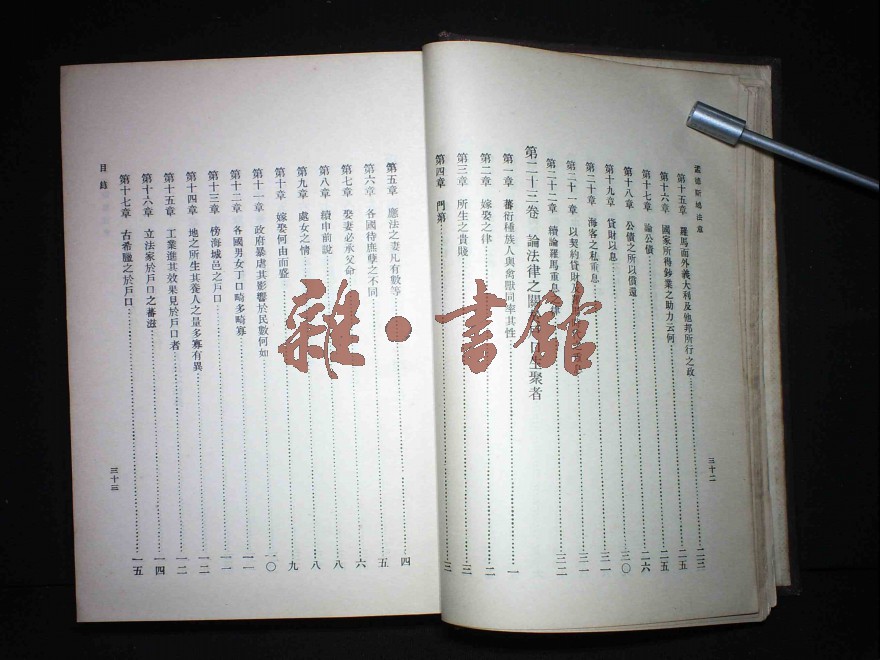 孟德斯鳩法意
第十五章 羅馬而外義大利及他邦所行之政 二三
第十六章 國家所得鈔業之助力云何 二五
第十七章 論公債 二五
第十八章 公債之所以償還 二六
第十九章 貸財以息 三〇
第二十章 海客之私重息 三一
第二十一章 以契約貸財
第二十二章 續論羅馬重息 三二
第二十三卷 論法律之關 口生聚者
第一章 蕃衍種族人與禽獸同率其性 一
第二章 嫁娶之律 二
第三章 所生之貴賤 三
第四章 門第 三
三十二
第五章 應法之妻凡有數等 四
第六章 各國待庶孽之不同 五
第七章 娶妻必承父命 六
第八章 續申前說 八
第九章 處女之情 八
第十章 嫁娶何由而盛 九
第十一章 政府暴虐其影響於民數何如 一〇
第十二章 各國男女丁口畸多畸寡 一一
第十三章 傍海城邑之戶口 一一
第十四章 地之所生其養人之量多寡有異 一二
第十五章 工業進其效果見於戶口者 一二
第十六章 立法家於戶口之蕃滋 一四
第十七章 古希臘之於戶口 一五
目錄
三十三
雜·書館